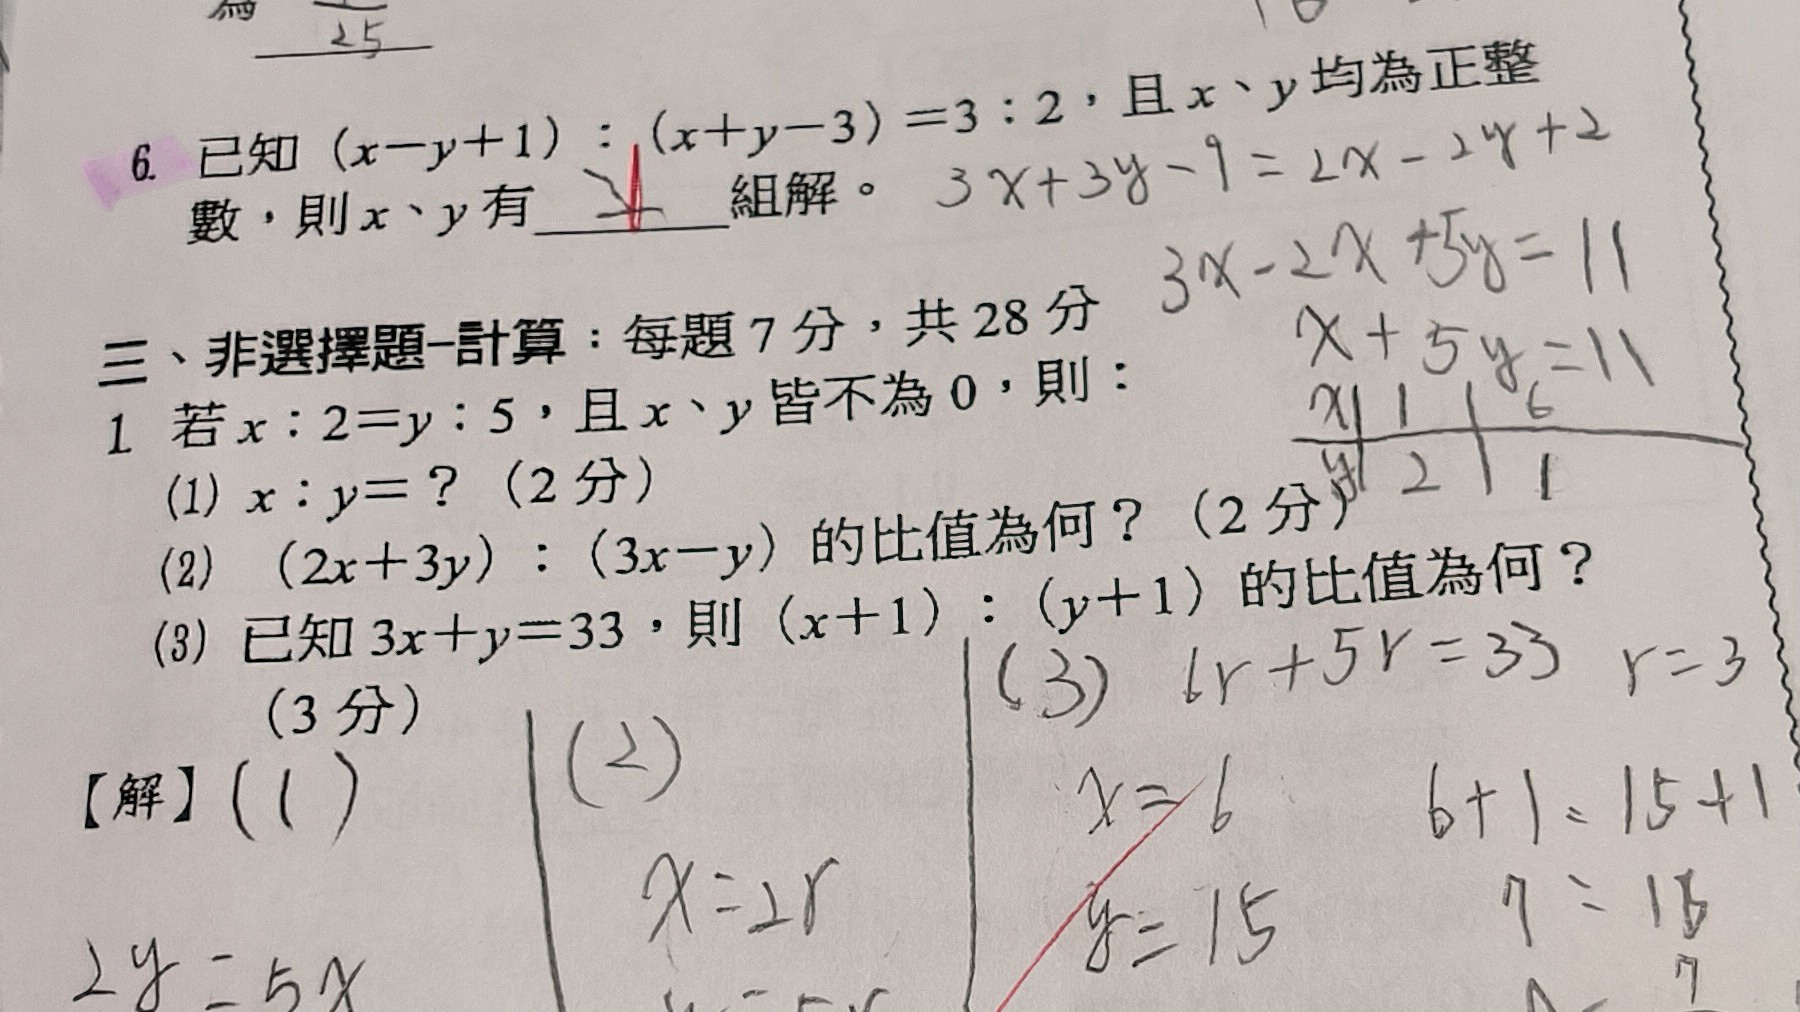 為
25
6. 已知（x－y＋1）：（x＋y－3）＝3：2，且 x、y 均為正整
數，則 x、y 有 組解。
3x+3y-9=2x-2y+2
3x-2x+5y=11
x+5y=11
x 1 6
y 2 1
三、非選擇題－計算：每題 7 分，共 28 分
1 若 x：2＝y：5，且 x、y 皆不為 0，則：
(1) x：y＝？（2 分）
(2) （2x＋3y）：（3x－y）的比值為何？（2 分）
(3) 已知 3x＋y＝33，則（x＋1）：（y＋1）的比值為何？
（3 分）
【解】(1)
2y=5x
(2)
x=2r
(3) 6r+5r=33 r=3
x=6
y=15
6+1:15+1
7:16
7